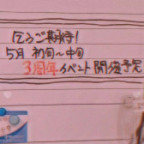 乞うご期待!
5月 初旬〜中旬
3周年 イベント 開催予定